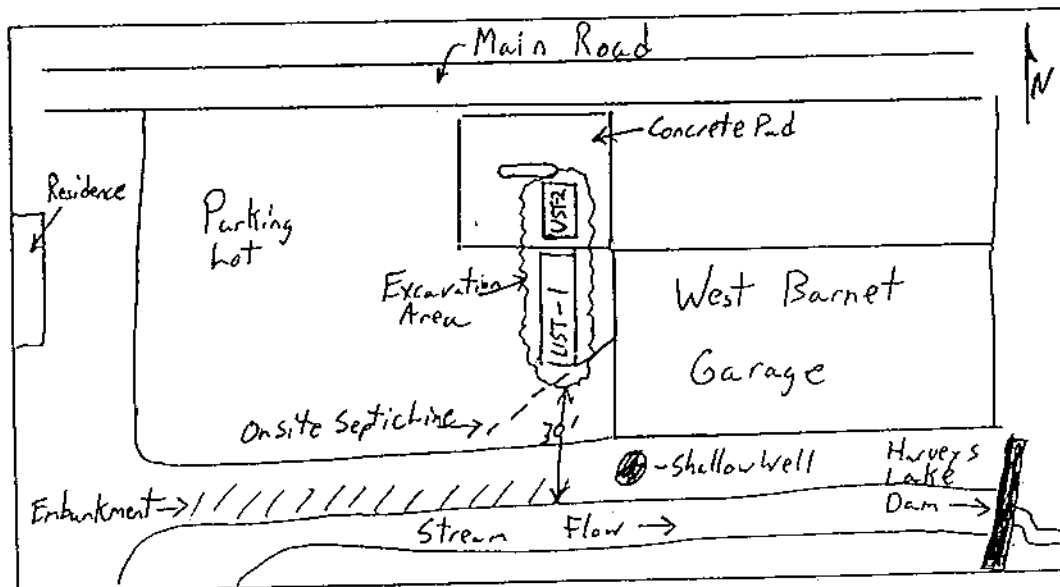 Main Road
N
Concrete Pad
Residence
Parking
Lot
UST-2
Excavation
Area
UST-1
West Barnet
Garage
Onsite Septic Line
30'
-Shallow Well
Harveys
Lake
Dam
Embankment
Stream Flow